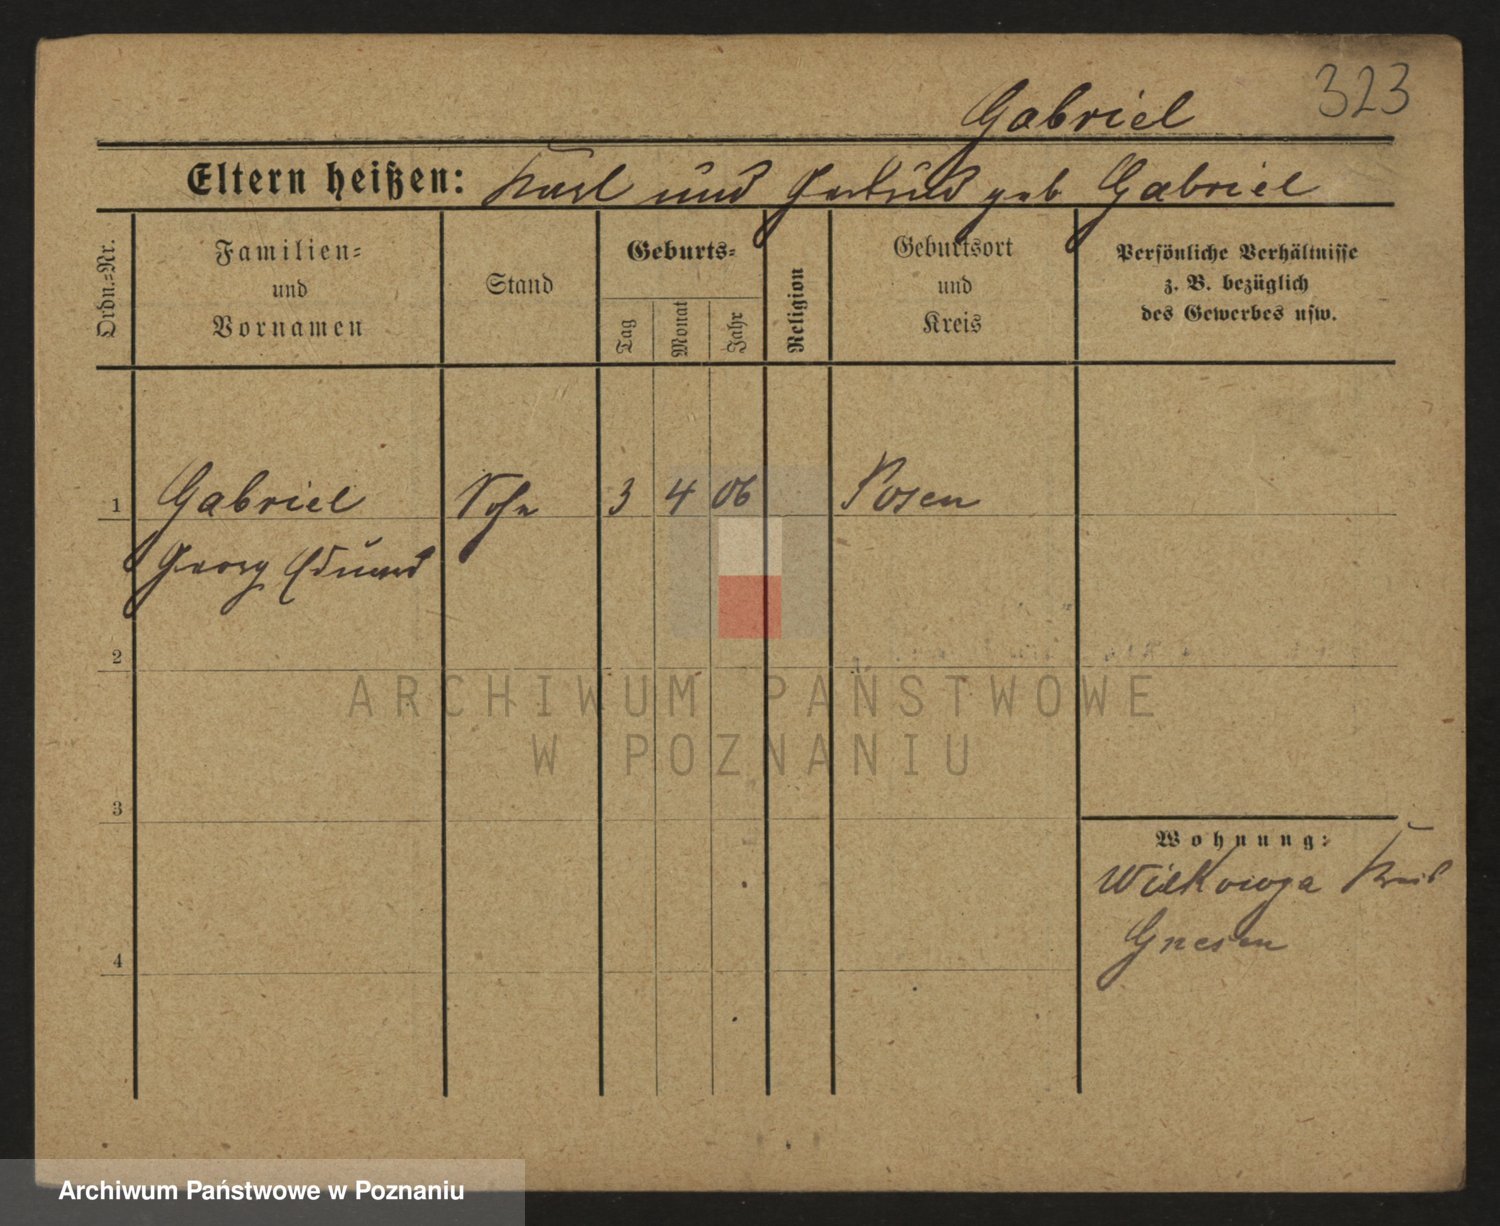 323
Gabriel
Eltern heißen: Karl und Gertrud geb Gabriel
Ordn.=Nr.
Familien=
und
Vornamen
Stand
Geburts=
Tag
Monat
Jahr
Religion
Geburtsort
und
Kreis
Persönliche Verhältnisse
z. B. bezüglich
des Gewerbes usw.
1 Gabriel Sohn 3 4 06 Posen
Georg Eduard
2
ARCHIWUM PAŃSTWOWE
W POZNANIU
3
Wohnung:
Wilkowyja Kreis
Gnesen
4
Archiwum Państwowe w Poznaniu